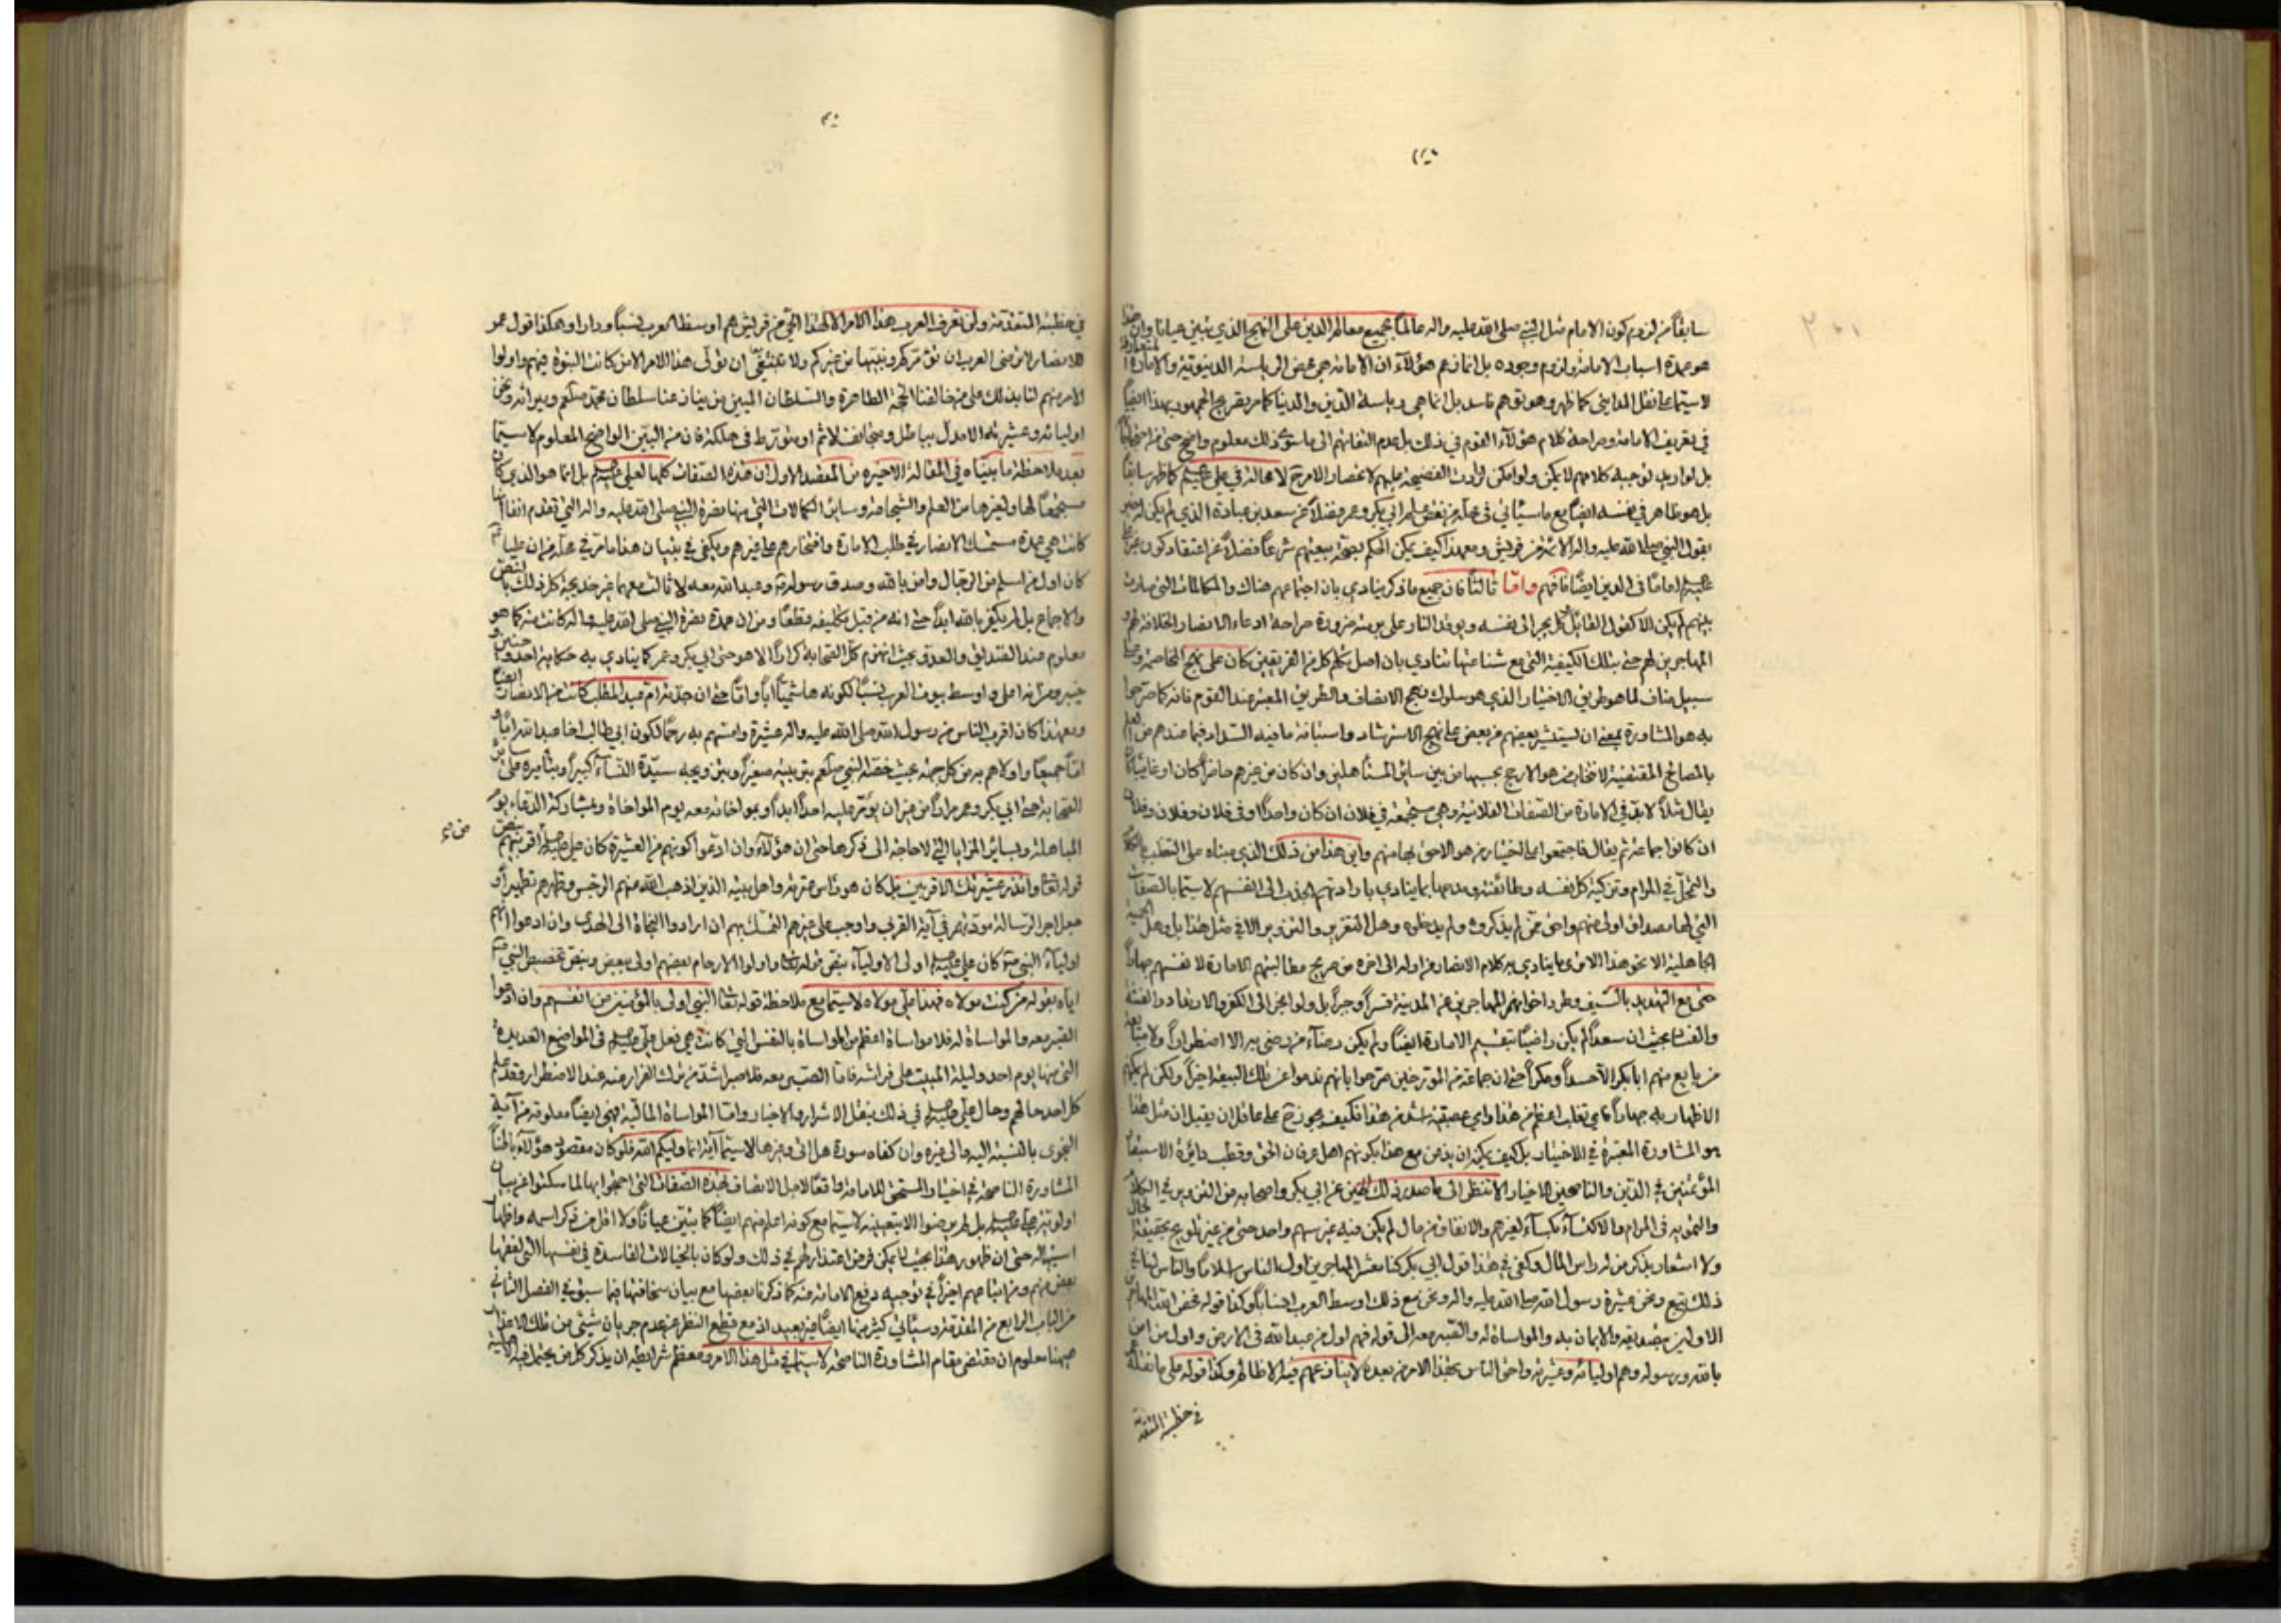 سابقاً من لزوم كون الامام مثل النبي صلى الله عليه واله عالماً بجميع معالم الدين على النهج الذي تبين عياناً وان هذا
هو عمدة اسباب الامامة ولزوم وجوده بل انما زعم هؤلاء ان الامامة هي محض الرياسة الدنيوية والامارة
لاسيما على نقل المدايني كما ظهر وهو توهم فاسد بل انما هي رياسة الدين والدنيا كما مر تصريح الجمهور بهذا ايضاً
في تعريف الامامة وصراحة كلام هؤلاء القوم في ذلك بل عدم التفاتهم الى ما سوى ذلك معلوم واضح حتى
بل لو اريد توجيه كلامهم لا يمكن ولو امكن لزادت الفضيحة عليهم لانحصار الامر ح لا محالة في علي كما ظهر سابقاً
بل هو ظاهر في نفسه ايضاً مع ما سيأتي في محله من نقص علم ابي بكر وعمر فضلاً عن سعد بن عبادة الذي لم يكن له خبر
بقول النبي صلى الله عليه واله الائمة من قريش ومع هذا كيف يمكن الحكم بصحة بيعتهم شرعاً فضلاً عن اعتقاد كون
اماماً في الدين ايضاً فافهم واما ثالثاً فان جميع ما ذكر ينادي بان اجتماعهم هناك والمكالمات التي صارت
بينهم لم يكن الا كفول القائل كل يجر الى نفسه ويوقد النار على برمته ضرورة صراحة ادعاء الانصار الخلافة لهم و
المهاجرين لهم حتى بتلك الكيفية التي مع شناعتها تنادي بان اصل تكلم كل من الفريقين كان على نهج المخاصمة
سبيل مناف لما هو طريق الاختيار الذي هو سلوك نهج الانصاف والطريق المعتبر عند القوم فانه كما صرحوا
به هو المشاورة بمعنى ان يستشير بعضهم من بعض على نهج الاسترشاد واستبانة ما فيه السداد فيما عندهم من العلم
بالمصالح المقتضية لانتخاب من هو الارجح بحسبها من بين سائر المستأهلين وان كان من غيرهم حاضراً كان او غائباً
يقال مثلاً لابد في الامارة من الصفات الفلانية وهي مجتمعة في فلان ان كان واحداً او في فلان وفلان وفلان
ان كانوا جماعة ثم يقال فاجتمعوا على اختيار من هو الاحق بها منهم واين هذا من ذلك الذي مبناه على التغلب
في المرام وتزكية كل نفسه وطائفته ومدحها بما ينادي بارادتهم الجذب الى انفسهم لاسيما بالصفات
التي لها مصداق اولى منهم واحق ممن لم يذكروه ولم يدخلوه وهل التغرير والتزوير الا في مثل هذا بل وهل الحمية
الجاهلية الا نحو هذا الا ترى ما ينادي به كلام الانصار من اوله الى اخره من صريح مطالبتهم الامارة لانفسهم جهاراً
حتى مع التهديد بالسيف وطرد اخوانهم المهاجرين من المدينة قسراً وجبراً بل ولو انجر الى الكفر والارتداد والفتنة
بحيث ان سعداً لم يكن راضياً بتقسيم الامارة ايضاً ولم يكن رضاء من رضي به الا اضطراراً ولا
من بايع منهم ابا بكر الا حسداً ومكراً حتى ان جماعة من المؤرخين صرحوا بانهم ندموا عن تلك البيعة اخيراً ولكن لم يمكنهم
الاظهار به جهاراً فاي تغلب اعظم من هذا واي عصبية اشد من هذا فكيف يجوز ح على عاقل ان يقبل ان مثل هذا
هو المشاورة المعتبرة في الاختيار بل كيف يمكن ان يذعن مع هذا بكونهم اهل عرفان الحق وقطب دائرة
المؤتمنين في الدين والناصحين الاخيار الا تنظر الى ما صدر في ذلك الحين عن ابي بكر واصحابه من التزوير في الكلام
والتمويه في المرام والاكتساء بكساء لغيرهم والانفاق من مال لم يكن فيه غير سهم واحد حتى من غير تلويح بحقيقة الحال
ولا اشعار بذكر من له راس المال وكفى في هذا قول ابي بكر كنا معشر المهاجرين اول الناس اسلاماً والناس لنا في
ذلك تبع ونحن عشيرة رسول الله صلى الله عليه واله ونحن مع ذلك اوسط العرب انساباً وكذا قوله فخص الله المهاجرين
الاولين بتصديقه والايمان به والمواساة له والصبر معه الى قوله فهم اول من عبد الله في الارض واول من امن
بالله ورسوله وهم اوليائه وعشيرته واحق الناس بهذا الامر من بعده لا ينازعهم فيه الا ظالم وكذا قوله على ما نقله
في خطبته المتقدمة
في خطبته المتقدمة ولن تعرف العرب هذا الامر الا لهذا الحي من قريش هم اوسط العرب نسباً وداراً وهكذا قول عمر
للانصار لا ترضى العرب ان تؤمركم ونبيها من غيركم ولا تمتنع ان تولى هذا الامر الا من كانت النبوة فيهم واولوا
الامر منهم لنا بذلك على من خالفنا الحجة الظاهرة والسلطان المبين من ينازعنا سلطان محمد صلعم وميراثه ونحن
اوليائه وعشيرته الا مدل بباطل ومتجانف لاثم او متورط في هلكة فان من البين الواضح المعلوم لاسيما
بعد ملاحظة ما بيناه في المقالة الاخيرة من المقصد الاول ان هذه الصفات كلها لعلي بل انما هو الذي كان
مستجمعاً لها ولغيرها من العلم والشجاعة وسائر الكمالات التي منها نصرة النبي صلى الله عليه واله التي تقدم انفاً انها
كانت هي عمدة مستمسك الانصار في طلب الامارة وافتخارهم على غيرهم ويكفي في تبيان هذا ما مر في محله من ان علياً
كان اول من اسلم من الرجال وامن بالله وصدق رسوله وعبد الله معه لا ثالث معهما غير خديجة كل ذلك بالنص
والاجماع بل لم يكفر بالله ابداً حتى انه من قبل تكليفه قطعاً ومن ان عمدة نصرة النبي صلى الله عليه واله كانت منه كما هو
معلوم عند الصديق والعدو بحيث انهزم كل الصحابة كراراً الا هو حتى ابي بكر وعمر كما ينادي به حكاية احد وحنين و
خيبر ومن انه اعلى واوسط بيوت العرب نسباً لكونه هاشمياً اباً واماً حتى ان جدته ام عبد المطلب كانت من الانصار ايضاً
ومع هذا كان اقرب الناس من رسول الله صلى الله عليه واله عشيرة وامسهم به رحماً لكون ابي طالب اخا عبد الله اباً و
اماً جميعاً واولاهم به من كل جهة بحيث خصه النبي صلعم بتربيته صغيراً وبتزويجه سيدة النساء كبيراً وبتأميره على سائر
الصحابة حتى ابي بكر وعمر مراراً من غير ان يؤمر عليه احداً ابداً وبمواخاته معه يوم المواخاة ومشاركة الدعاء يوم
المباهلة وبسائر المزايا التي لا حاجة الى ذكرها حتى ان هؤلاء وان ادعوا كونهم من العشيرة كان علي اقربيتهم بنص
قوله تعالى وانذر عشيرتك الاقربين بل كان هو راس عترته واهل بيته الذين اذهب الله منهم الرجس وطهرهم تطهيراً و
جعل اجر الرسالة مودتهم في آية القربى واوجب على غيرهم التمسك بهم ان ارادوا النجاة الى الهدى وان ادعوا انهم
اولياء النبي كان علي اولى الاولياء بنص قوله تعالى واولوا الارحام بعضهم اولى ببعض وبنص تخصيص النبي
اياه بقوله من كنت مولاه فهذا علي مولاه لاسيما مع ملاحظة قوله تعالى النبي اولى بالمؤمنين من انفسهم وان ادعوا
الصبر معه والمواساة له فلا مواساة اعظم من المواساة بالنفس التي كانت هي فعل علي في المواضع العديدة
التي منها يوم احد وليلة المبيت على فراشه فاما الصبر معه فلا صبر اشد من ترك الفرار عنه عند الاضطرار وقد علم
كل احد حالهم وحال علي في ذلك بنقل الاشرار والاخيار واما المواساة المالية فهي ايضاً معلومة من آية
النجوى بالنسبة اليه والى غيره وان كفاه سورة هل اتى وغيرها لاسيما آية انما وليكم الله فلو كان مقصود هؤلاء باطناً
المشاورة الناصحة في اختيار المستحق للامامة واقعاً لاجل الاتصاف بهذه الصفات التي احتجوا بها لما سكتوا عن بيان
اولوية علي بل لم يرضوا الا بتعيينه لاسيما مع كونه اعلم منهم ايضاً كما تبين عياناً ولا اقل من ذكر اسمه واظهار
استيهاله حتى ان ظهور هذا بحيث لا يمكن فرض اعتذار لهم في ذلك ولو كان بالخيالات الفاسدة في نفسها التي لفقها
بعض منهم ومن اتباعهم اخيراً في توجيه دفع الامامة عنه كما ذكرنا بعضها مع بيان سخافتها فيما سبق في الفصل الثاني
من الباب الرابع من المقدمة وسيأتي كثير منها ايضاً فيما بعد اذ مع قطع النظر عن عدم جريان شيئ من تلك الاعذار
هيهنا معلوم ان مقتضى مقام المشاورة الناصحة لاسيما في مثل هذا الامر ومعظم شرايطه ان يذكر كل من يحتمل فيه